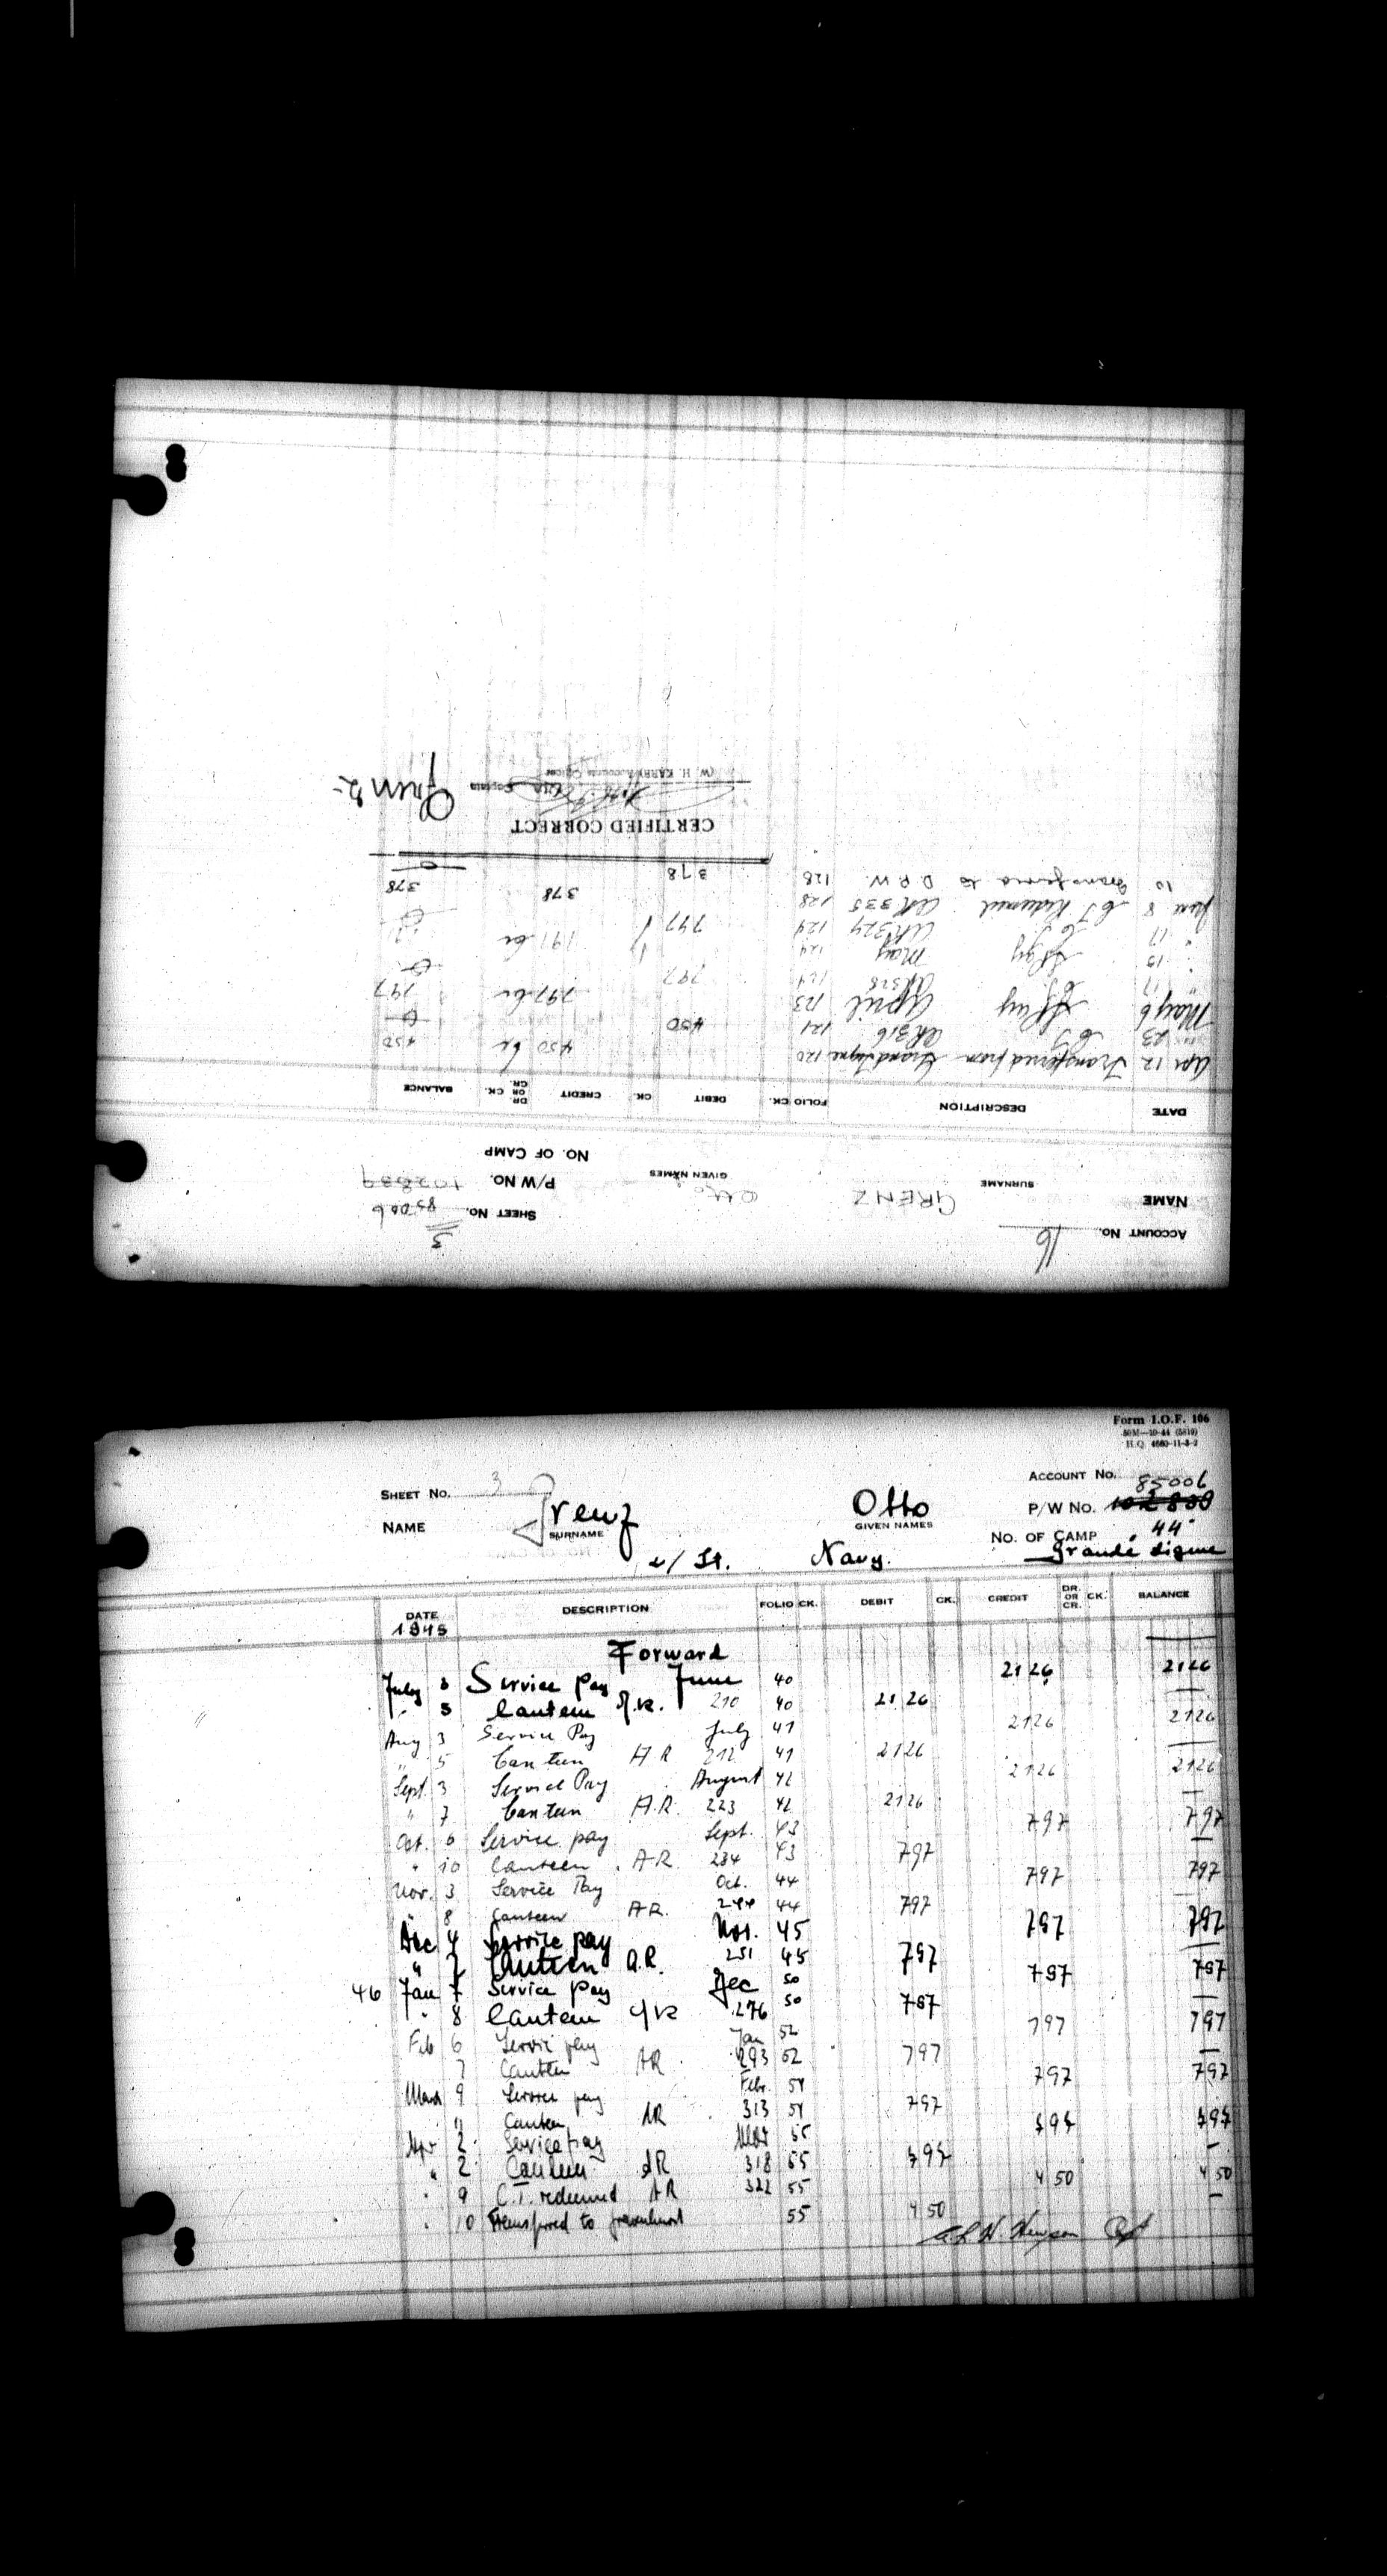 ACCOUNT No. 16
SHEET No. 3
85006
NAME GRENZ Otto P/W No. 102839
SURNAME GIVEN NAMES
NO. OF CAMP
DATE DESCRIPTION FOLIO CK. DEBIT CK. CREDIT DR OR CR. CK. BALANCE
Apr 12 Transferred from Grande Ligne 120 450 Cr 450
" 23 AR 316 121 450
May 6 S/Pay April 123 797 Cr 797
17 AR 328 124 797
15 S/Pay May 124 797 Cr
17 AR 324 124 797
June 8 C.T. Redeemed AR 335 128 378 378
10 Transferred to D.P.W. 128 378
CERTIFIED CORRECT
Captain
(W. H. KARRY) Accounts Officer
Grenz
Form I.O.F. 106
50M—10-44 (5819)
H.Q. 4660-11-3-2
SHEET No. 3
ACCOUNT No.
85006
NAME Grenz Otto P/W No. 102839
SURNAME GIVEN NAMES
No. OF CAMP 44
Navy. Grande Ligne
DATE DESCRIPTION FOLIO CK. DEBIT CK. CREDIT DR. OR CR. CK. BALANCE
1945
Forward
July 3 Service pay June 40 2126 2126
" 5 Canteen A.R. 210 40 2126
Aug 3 Service Pay July 41 2126 2126
" 5 Canteen AR 212 41 2126
Sept. 3 Service Pay August 42 2126 2126
" 7 Canteen A.R. 223 42 2126
Oct. 6 Service pay Sept. 43 797 797
" 10 Canteen A-R. 234 43 797
Nov. 3 Service Pay Oct. 44 797 797
" 8 Canteen AR. 244 44 797
Dec 4 Service pay Nov. 45 797 797
" 7 Canteen A.R. 251 45 797
46 Jan 7 Service pay Dec 50 797 797
" 8 Canteen A/R 276 50 797
Feb 6 Service pay Jan 52 797 797
7 Canteen AR 293 52 797
March 9 Service pay Febr. 54 797 797
" Canteen AR 313 54 797
Apr 2 Service pay Mar 55 797 797
" 2 Canteen AR 318 55 797
" 9 C.T. redeemed AR 322 55 4 50 4 50
" 10 Transfered to Gravenhurst 55 4 50